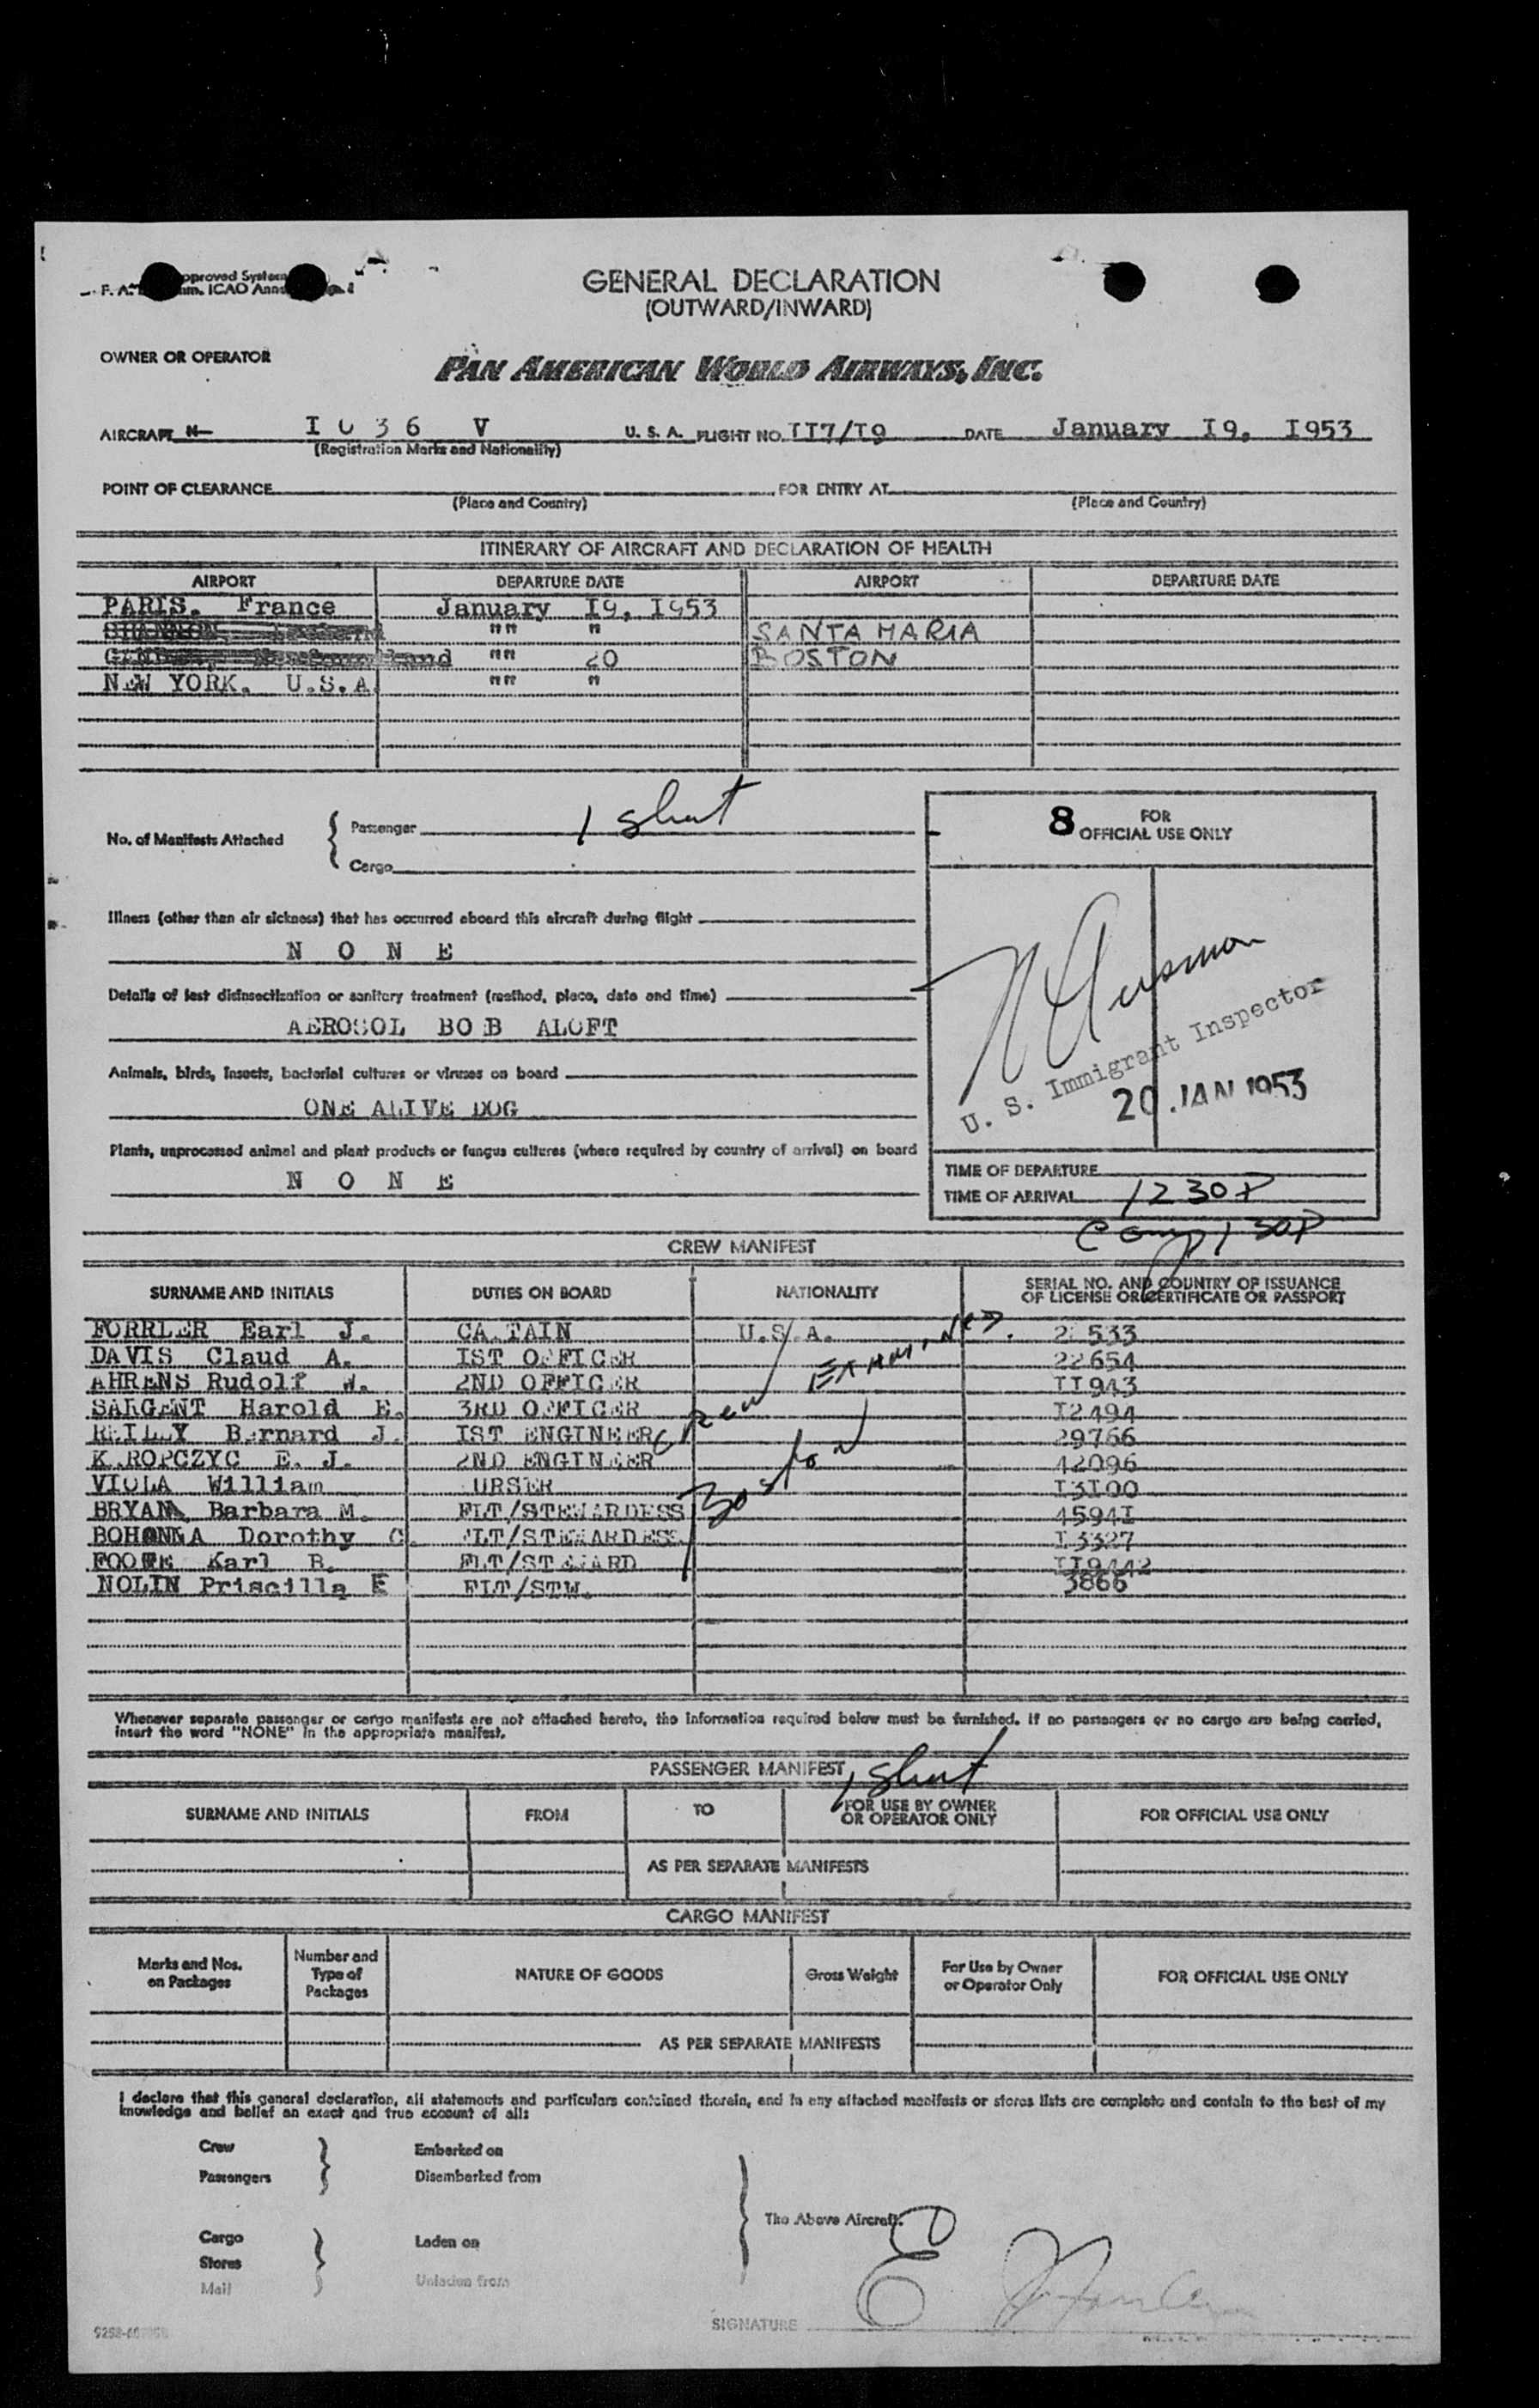 GENERAL DECLARATION
(OUTWARD/INWARD)
OWNER OR OPERATOR
PAN AMERICAN WORLD AIRWAYS, INC.
AIRCRAFT N- I 0 3 6 V U. S. A. FLIGHT NO. II7/I9 DATE January I9, I953
(Registration Marks and Nationality)
POINT OF CLEARANCE FOR ENTRY AT
(Place and Country) (Place and Country)
ITINERARY OF AIRCRAFT AND DECLARATION OF HEALTH
AIRPORT DEPARTURE DATE AIRPORT DEPARTURE DATE
PARIS. France January I9, I953
"" " SANTA MARIA
"" 20 BOSTON
NEW YORK. U.S.A. "" "
No. of Manifests Attached
Passenger 1 shut
Cargo
8 FOR
OFFICIAL USE ONLY
Illness (other than air sickness) that has occurred aboard this aircraft during flight
N O N E
Details of last disinsectization or sanitary treatment (method, place, date and time)
AEROSOL BO B ALOFT
Animals, birds, insects, bacterial cultures or viruses on board
ONE ALIVE DOG
Plants, unprocessed animal and plant products or fungus cultures (where required by country of arrival) on board
N O N E
U. S. Immigrant Inspector
20 JAN 1953
TIME OF DEPARTURE
TIME OF ARRIVAL 1230P
Comp 130P
CREW MANIFEST
SURNAME AND INITIALS DUTIES ON BOARD NATIONALITY SERIAL NO. AND COUNTRY OF ISSUANCE
OF LICENSE OR CERTIFICATE OR PASSPORT
FORRLER Earl J. CA TAIN U.S.A. 2 533
DAVIS Claud A. IST OFFICER 22654
AHRENS Rudolf W. 2ND OFFICER II943
SARGENT Harold E. 3RD OFFICER I2494
REILLY Bernard J. IST ENGINEER 29766
K ROPCZYC E. J. 2ND ENGINEER 42096
VIOLA William URSER I3I00
BRYAN Barbara M. FLT/STEWARDESS 4594I
BOHONNA Dorothy C. FLT/STEWARDESS I3327
FOOTE Karl B. FLT/STEWARD II9442
NOLIN Priscilla E FLT/STW. 3866
Crew Examined
Boston
Whenever separate passenger or cargo manifests are not attached hereto, the information required below must be furnished. If no passengers or no cargo are being carried,
insert the word "NONE" in the appropriate manifest.
PASSENGER MANIFEST 1 shut
SURNAME AND INITIALS FROM TO FOR USE BY OWNER
OR OPERATOR ONLY FOR OFFICIAL USE ONLY
AS PER SEPARATE MANIFESTS
CARGO MANIFEST
Marks and Nos.
on Packages Number and
Type of
Packages NATURE OF GOODS Gross Weight For Use by Owner
or Operator Only FOR OFFICIAL USE ONLY
AS PER SEPARATE MANIFESTS
I declare that this general declaration, all statements and particulars contained therein, and in any attached manifests or stores lists are complete and contain to the best of my
knowledge and belief an exact and true account of all:
Crew Embarked on
Passengers Disembarked from
The Above Aircraft.
Cargo Laden on
Stores
Mail Unladen from
SIGNATURE